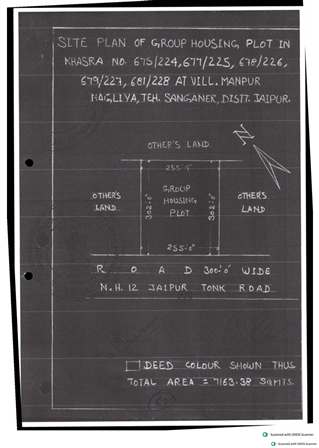 SITE PLAN OF GROUP HOUSING PLOT IN
KHASRA NO. 675/224, 677/225, 678/226,
679/227, 681/228 AT VILL. MANPUR
NAGLIYA, TEH. SANGANER, DISTT. JAIPUR.
N
OTHER'S LAND
255'-0"
OTHER'S
LAND
302'-0"
GROUP
HOUSING
PLOT
302'-0"
OTHER'S
LAND
255'-0"
ROAD 300'-0" WIDE
N.H. 12 JAIPUR TONK ROAD
DEED COLOUR SHOWN THUS
TOTAL AREA = 7163.38 Sq.MTS.
Scanned with OKEN Scanner
Scanned with OKEN Scanner